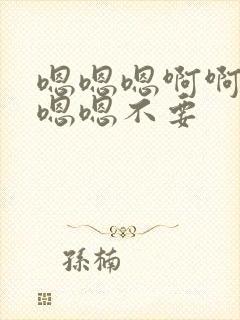 嗯嗯嗯啊啊
嗯嗯不要
孫楠